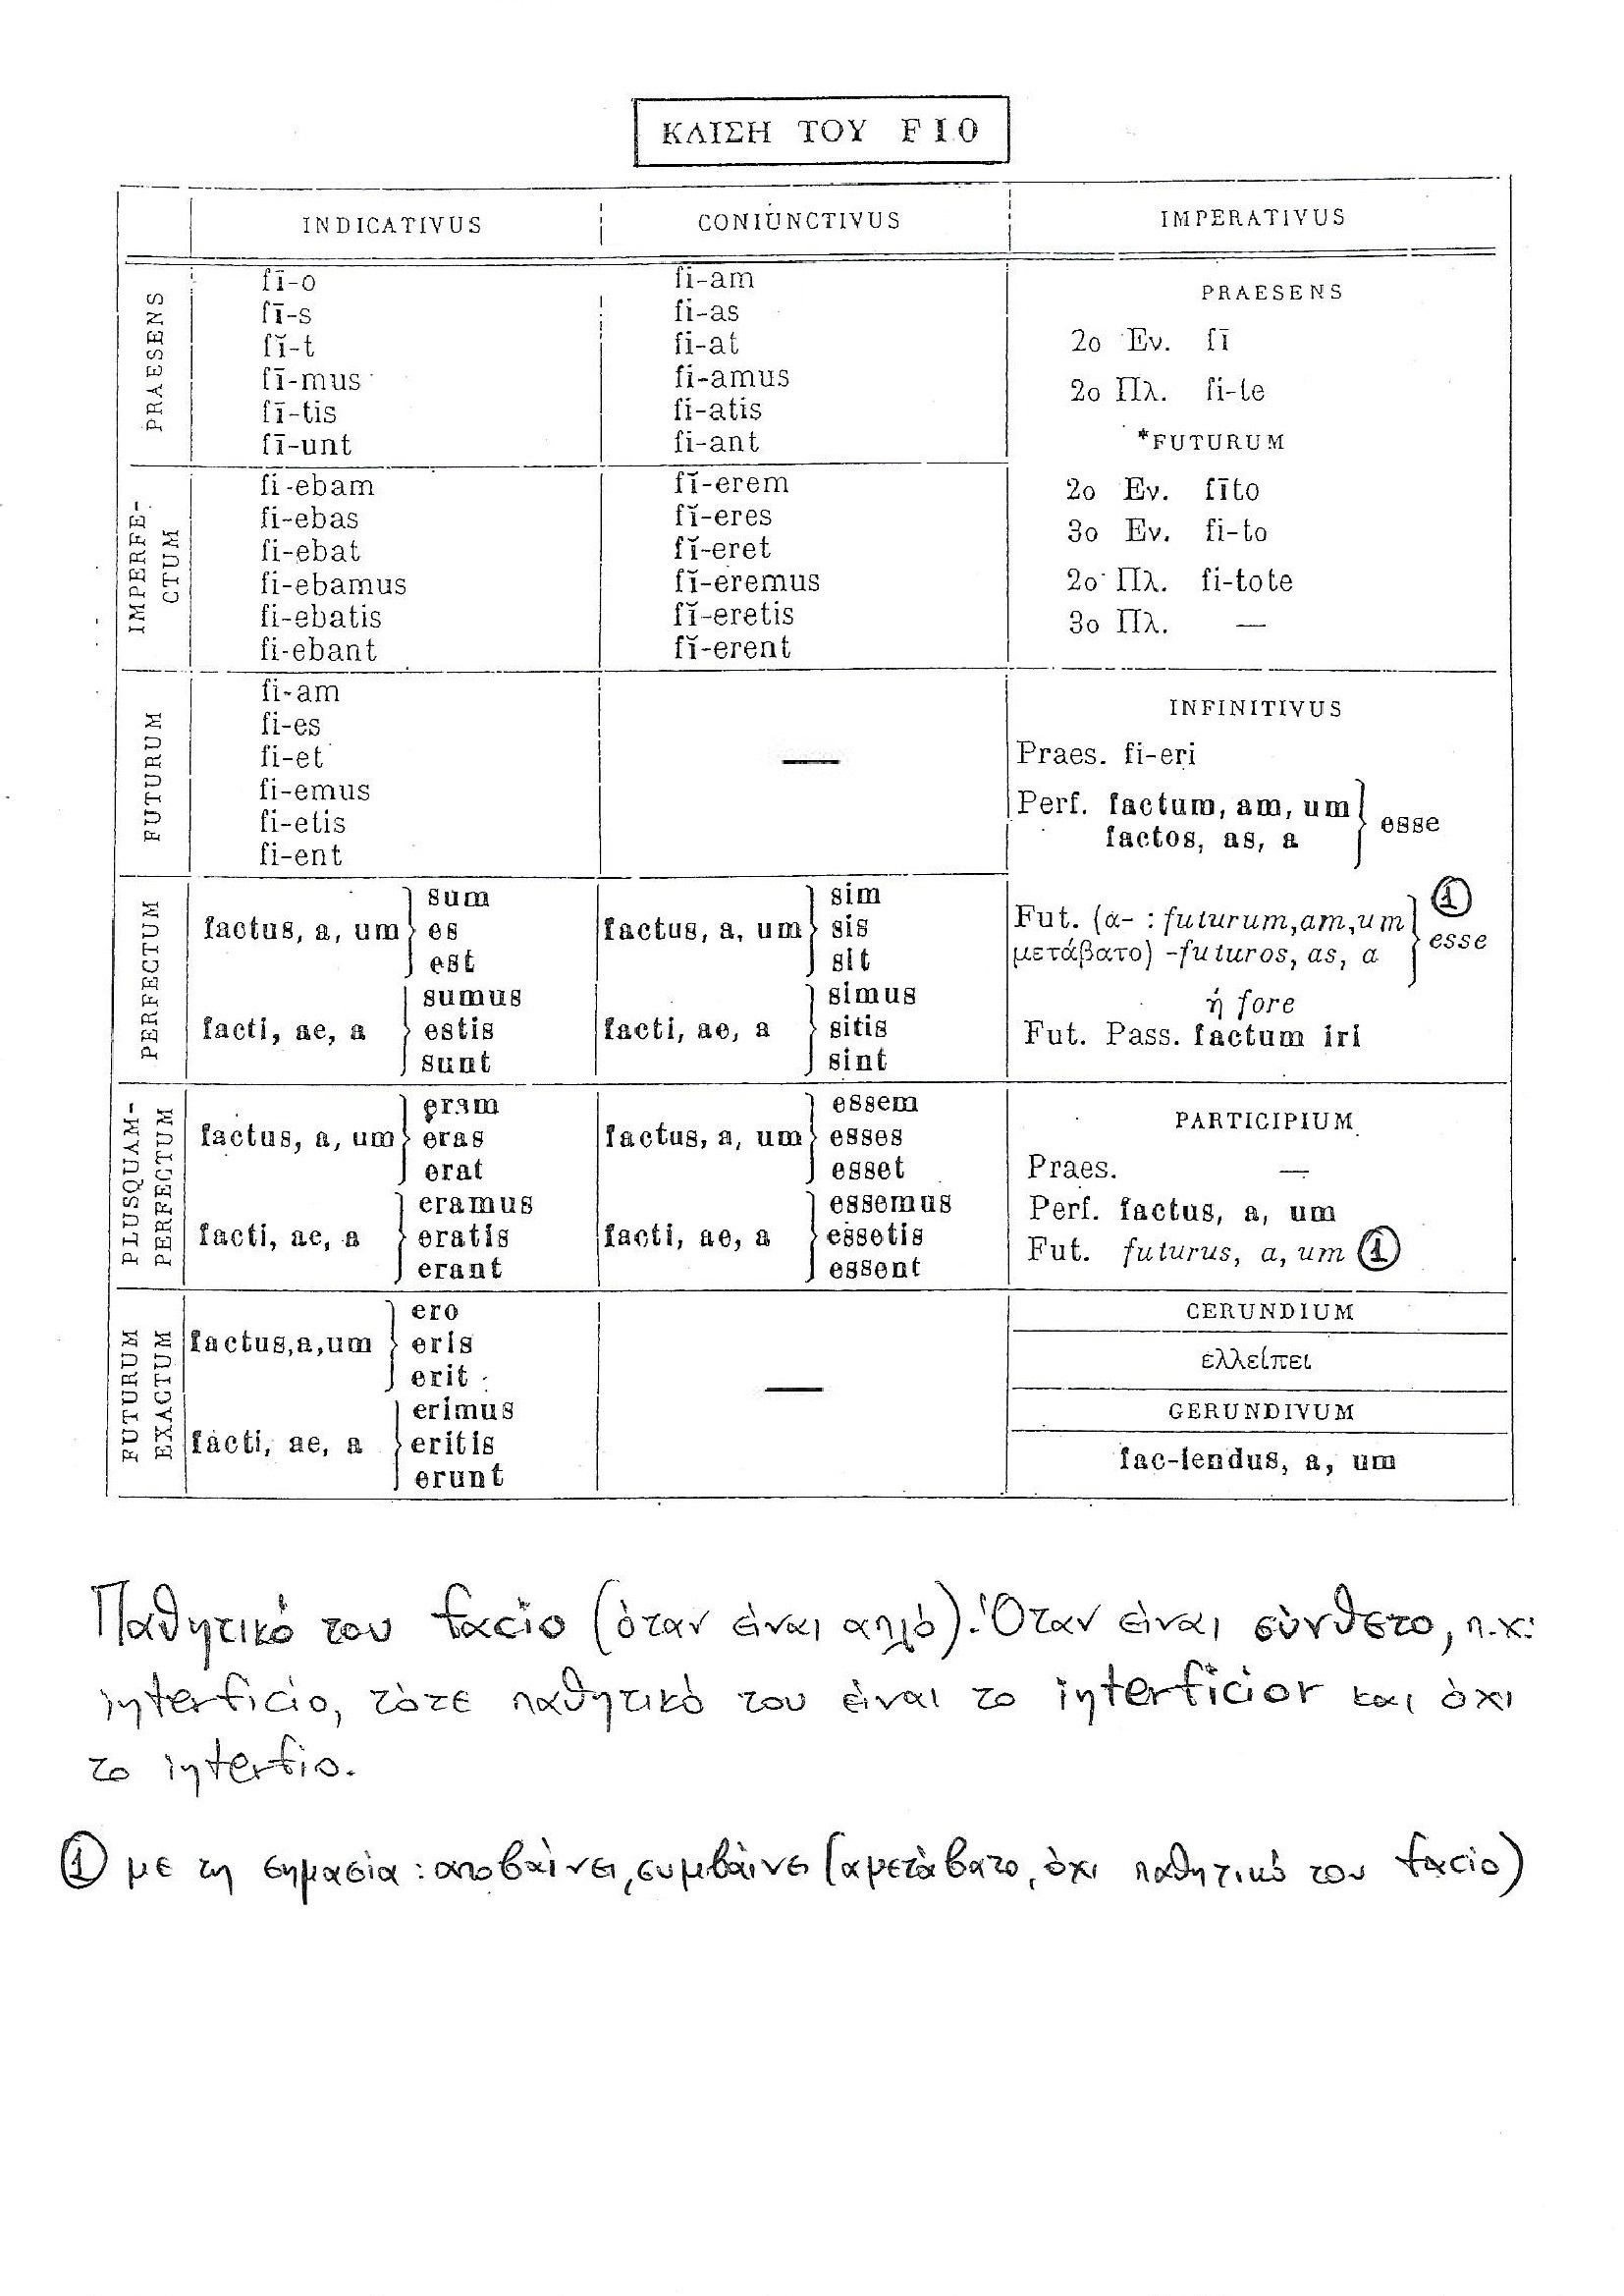 ΚΛΙΣΗ ΤΟΥ FIO
INDICATIVUS
CONIUNCTIVUS
IMPERATIVUS
PRAESENS
fī-o
fī-s
fĭ-t
fī-mus
fī-tis
fī-unt
fi-am
fi-as
fi-at
fi-amus
fi-atis
fi-ant
PRAESENS
2ο Εν. fī
2ο Πλ. fi-te
*FUTURUM
2ο Εν. fīto
3ο Εν. fi-to
2ο Πλ. fi-tote
3ο Πλ. —
IMPERFE-
CTUM
fi-ebam
fi-ebas
fi-ebat
fi-ebamus
fi-ebatis
fi-ebant
fĭ-erem
fĭ-eres
fĭ-eret
fĭ-eremus
fĭ-eretis
fĭ-erent
FUTURUM
fi-am
fi-es
fi-et
fi-emus
fi-etis
fi-ent
—
INFINITIVUS
Praes. fi-eri
Perf. factum, am, um
factos, as, a
esse
Fut. (ἀ- : futurum,am,um
μετάβατο) -futuros, as, a
esse
①
ή fore
Fut. Pass. factum iri
PERFECTUM
factus, a, um
sum
es
est
facti, ae, a
sumus
estis
sunt
factus, a, um
sim
sis
sit
facti, ae, a
simus
sitis
sint
PLUSQUAM-
PERFECTUM
factus, a, um
eram
eras
erat
facti, ae, a
eramus
eratis
erant
factus, a, um
essem
esses
esset
facti, ae, a
essemus
essetis
essent
PARTICIPIUM
Praes. —
Perf. factus, a, um
Fut. futurus, a, um ①
FUTURUM
EXACTUM
factus,a,um
ero
eris
erit
facti, ae, a
erimus
eritis
erunt
—
GERUNDIUM
ελλείπει
GERUNDIVUM
fac-iendus, a, um
Παθητικό του facio (όταν είναι απλό). Όταν είναι σύνθετο, π.χ:
interficio, τότε παθητικό του είναι το interficior και όχι
το interfio.
① με τη σημασία: αποβαίνει, συμβαίνει (αμετάβατο, όχι παθητικό του facio)